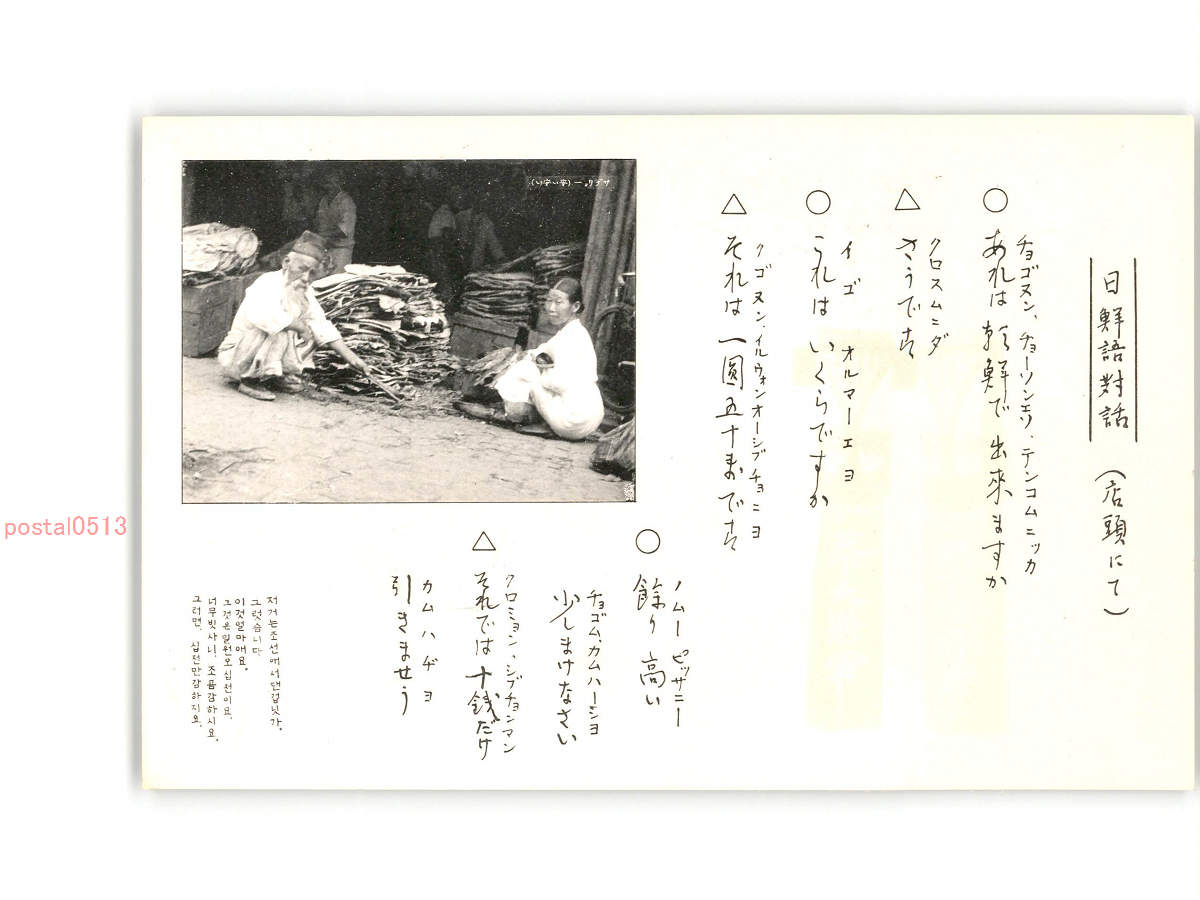 日鮮語對話 (店頭にて)
チョゴヌン、チョーソンエソ、テンコムニッカ
○ あれは 朝鮮で 出來ますか
クロスムニダ
△ さうです
イゴ オルマーエヨ
○ これは いくらですか
クゴヌン、イルウォンオーシブチョニヨ
△ それは 一圓五十銭です
ノムー ピッサニー
○ 餘り 高い
チョゴム、カムハーシヨ
少しまけなさい
クロミョン、シブチョンマン
△ それでは 十銭だけ
カムハヂヨ
引きませう
저거는조선에서댄겁닛가.
그럿슴니다
이것얼마애요.
그것은일원오십전이요.
너무빗사니, 조곰감하시요.
그러면, 십전만감하지요.
postal0513